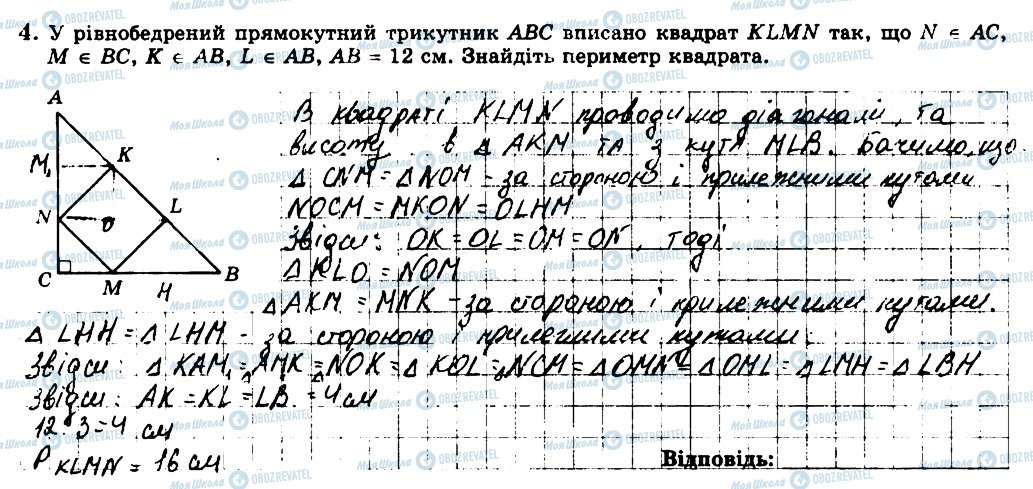 4. У рівнобедрений прямокутний трикутник ABC вписано квадрат KLMN так, що N ∈ AC,
M ∈ BC, K ∈ AB, L ∈ AB, AB = 12 см. Знайдіть периметр квадрата.
A
M₁
K
N
O
L
C
M
H
B
В квадраті KLMN проводимо діагоналі, та
висоту в △ AKM та з кута MLB. Бачимо, що
△ CNM = △ NOM - за стороною і прилежними кутами
NOCM = MKON = OLHM
Звідси: OK = OL = OM = ON, тоді
△ KLO = NOM
△ AKM = MNK - за стороною і прилежними кутами.
△ LHH = △ LHM - за стороною і прилеглими кутами.
Звідси: △ KAM₁ = △ AMK = △ NOK = △ KOL = △ NCM = △ OMN = △ OML = △ LMH = △ LBH.
Звідси: AK = KL = LB = 4 см
12 : 3 = 4 см
P KLMN = 16 см
Відповідь: